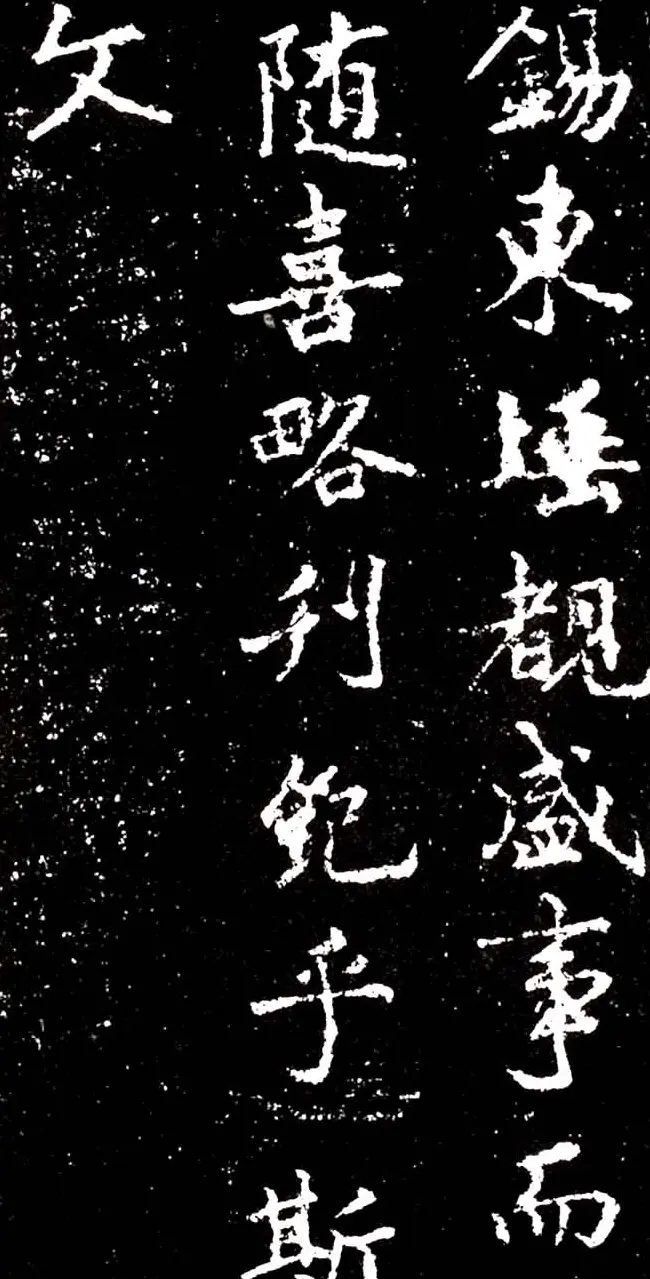 錫東垂覩盛事而
随喜略刊紀乎斯
文